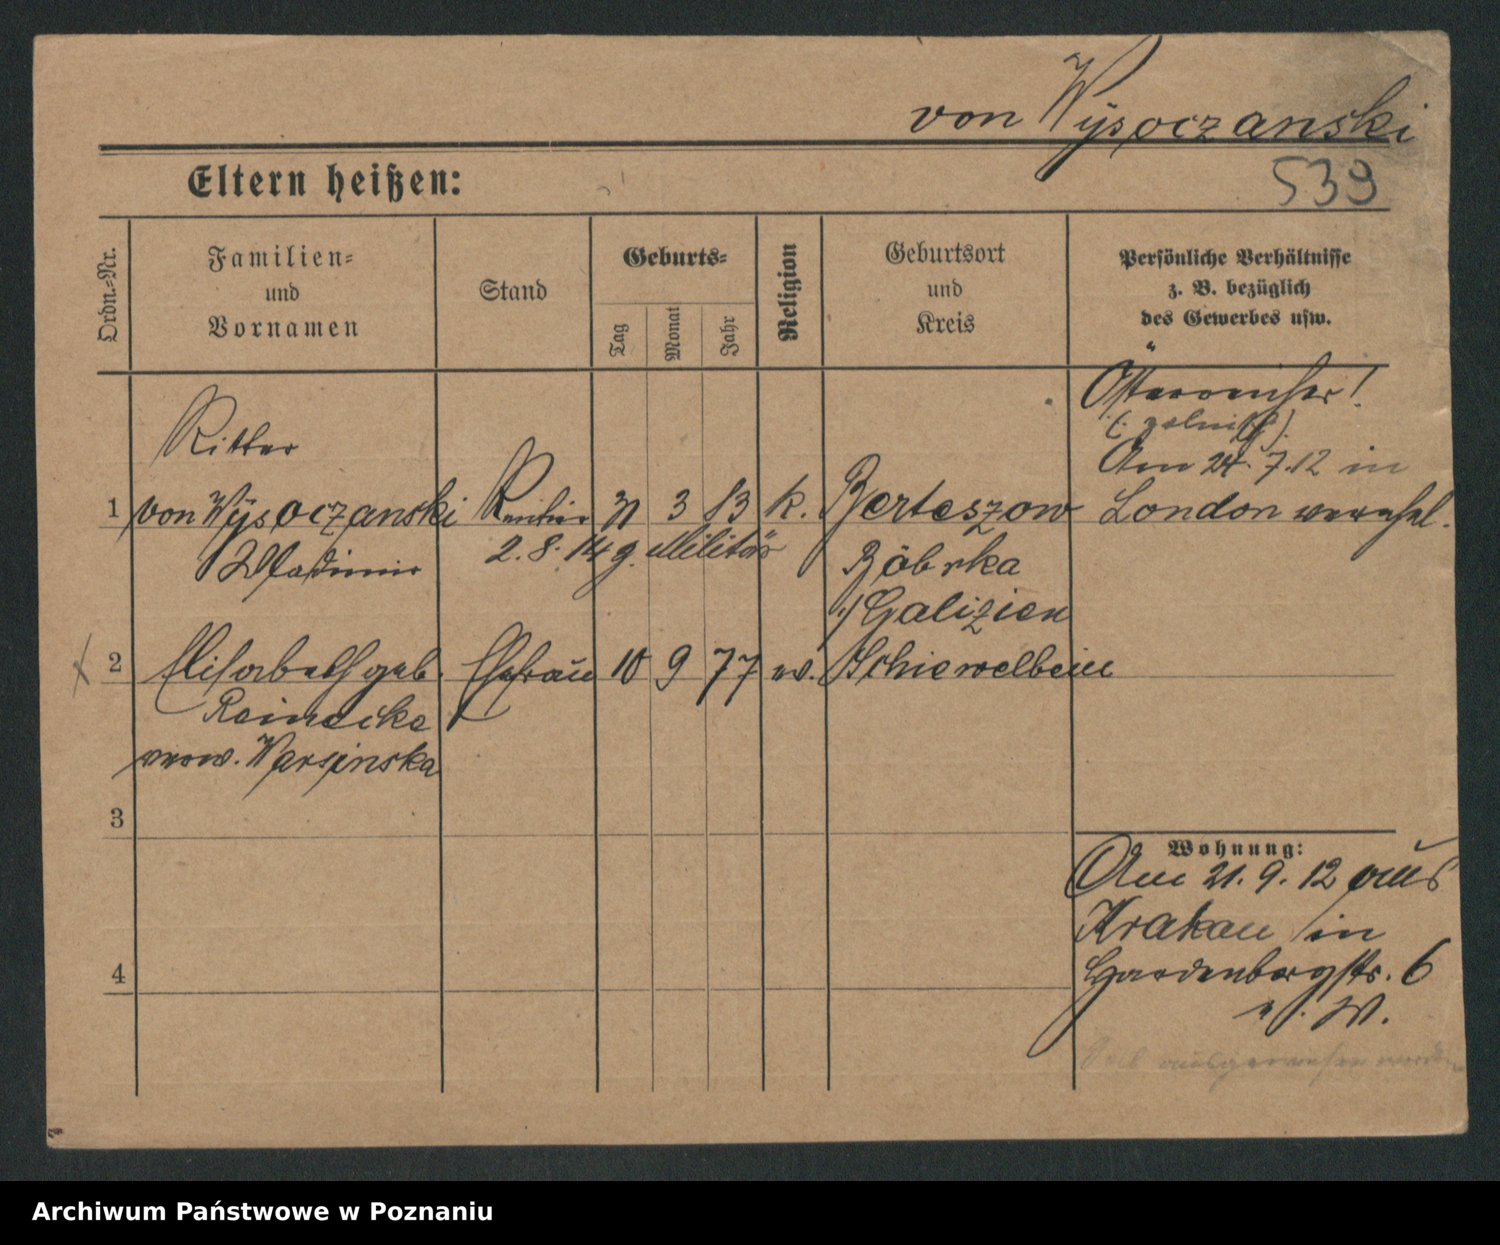 von Wysoczanski
539
Eltern heißen:
Ordn.-Nr.
Familien-
und
Vornamen
Stand
Geburts-
Tag
Monat
Jahr
Religion
Geburtsort
und
Kreis
Persönliche Verhältnisse
z. B. bezüglich
des Gewerbes usw.
Österreicher!
(: polnisch)
Am 24.7.12 in
London verehel.
Ritter
1 von Wysoczanski Rentier 3 83 k. Berteszow
Wladimir 2.8.14 z. Militär Bóbrka
Galizien
2 Elisabeth geb. Ehefrau 10 9 77 ev. Schievelbein
Reinecke
verw. Warsinska
3
Wohnung:
Am 21.9.12 aus
Krakau in
Hardenbergstr. 6
4
ausgewiesen werden